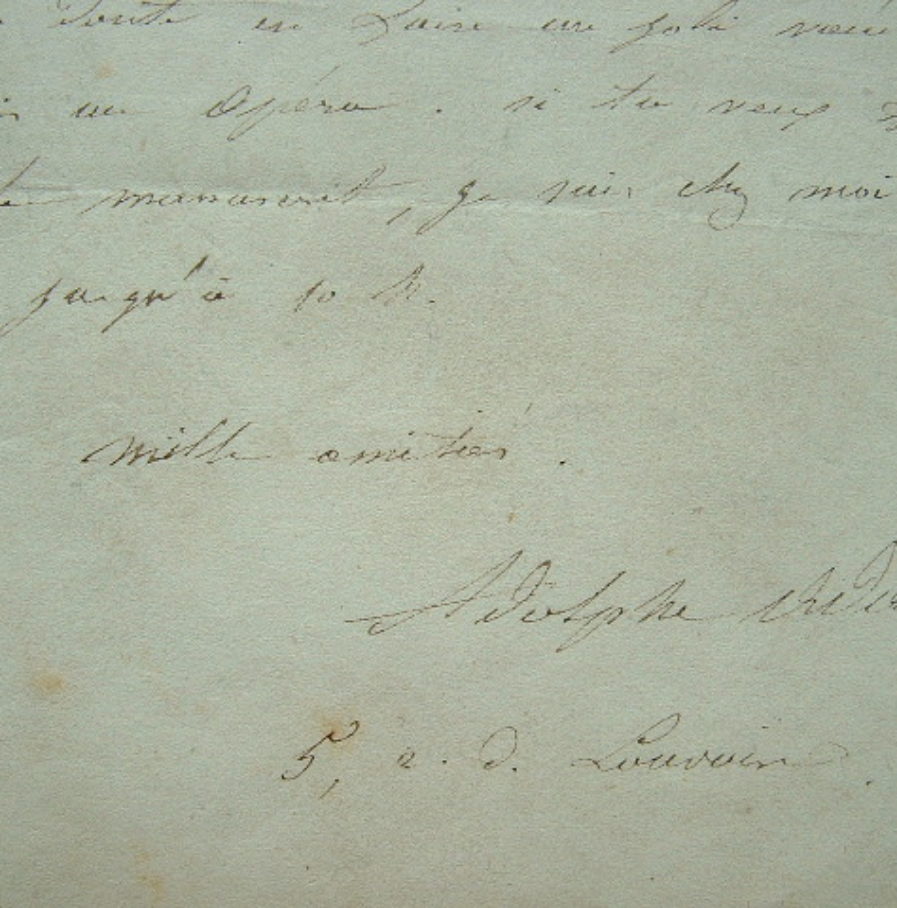 en faire un joli
un Opéra. si tu veux
manuscrit, je suis chez moi
jusqu'à 10 h.
mille amitiés.
Adolphe
5, r. d. Louvois.